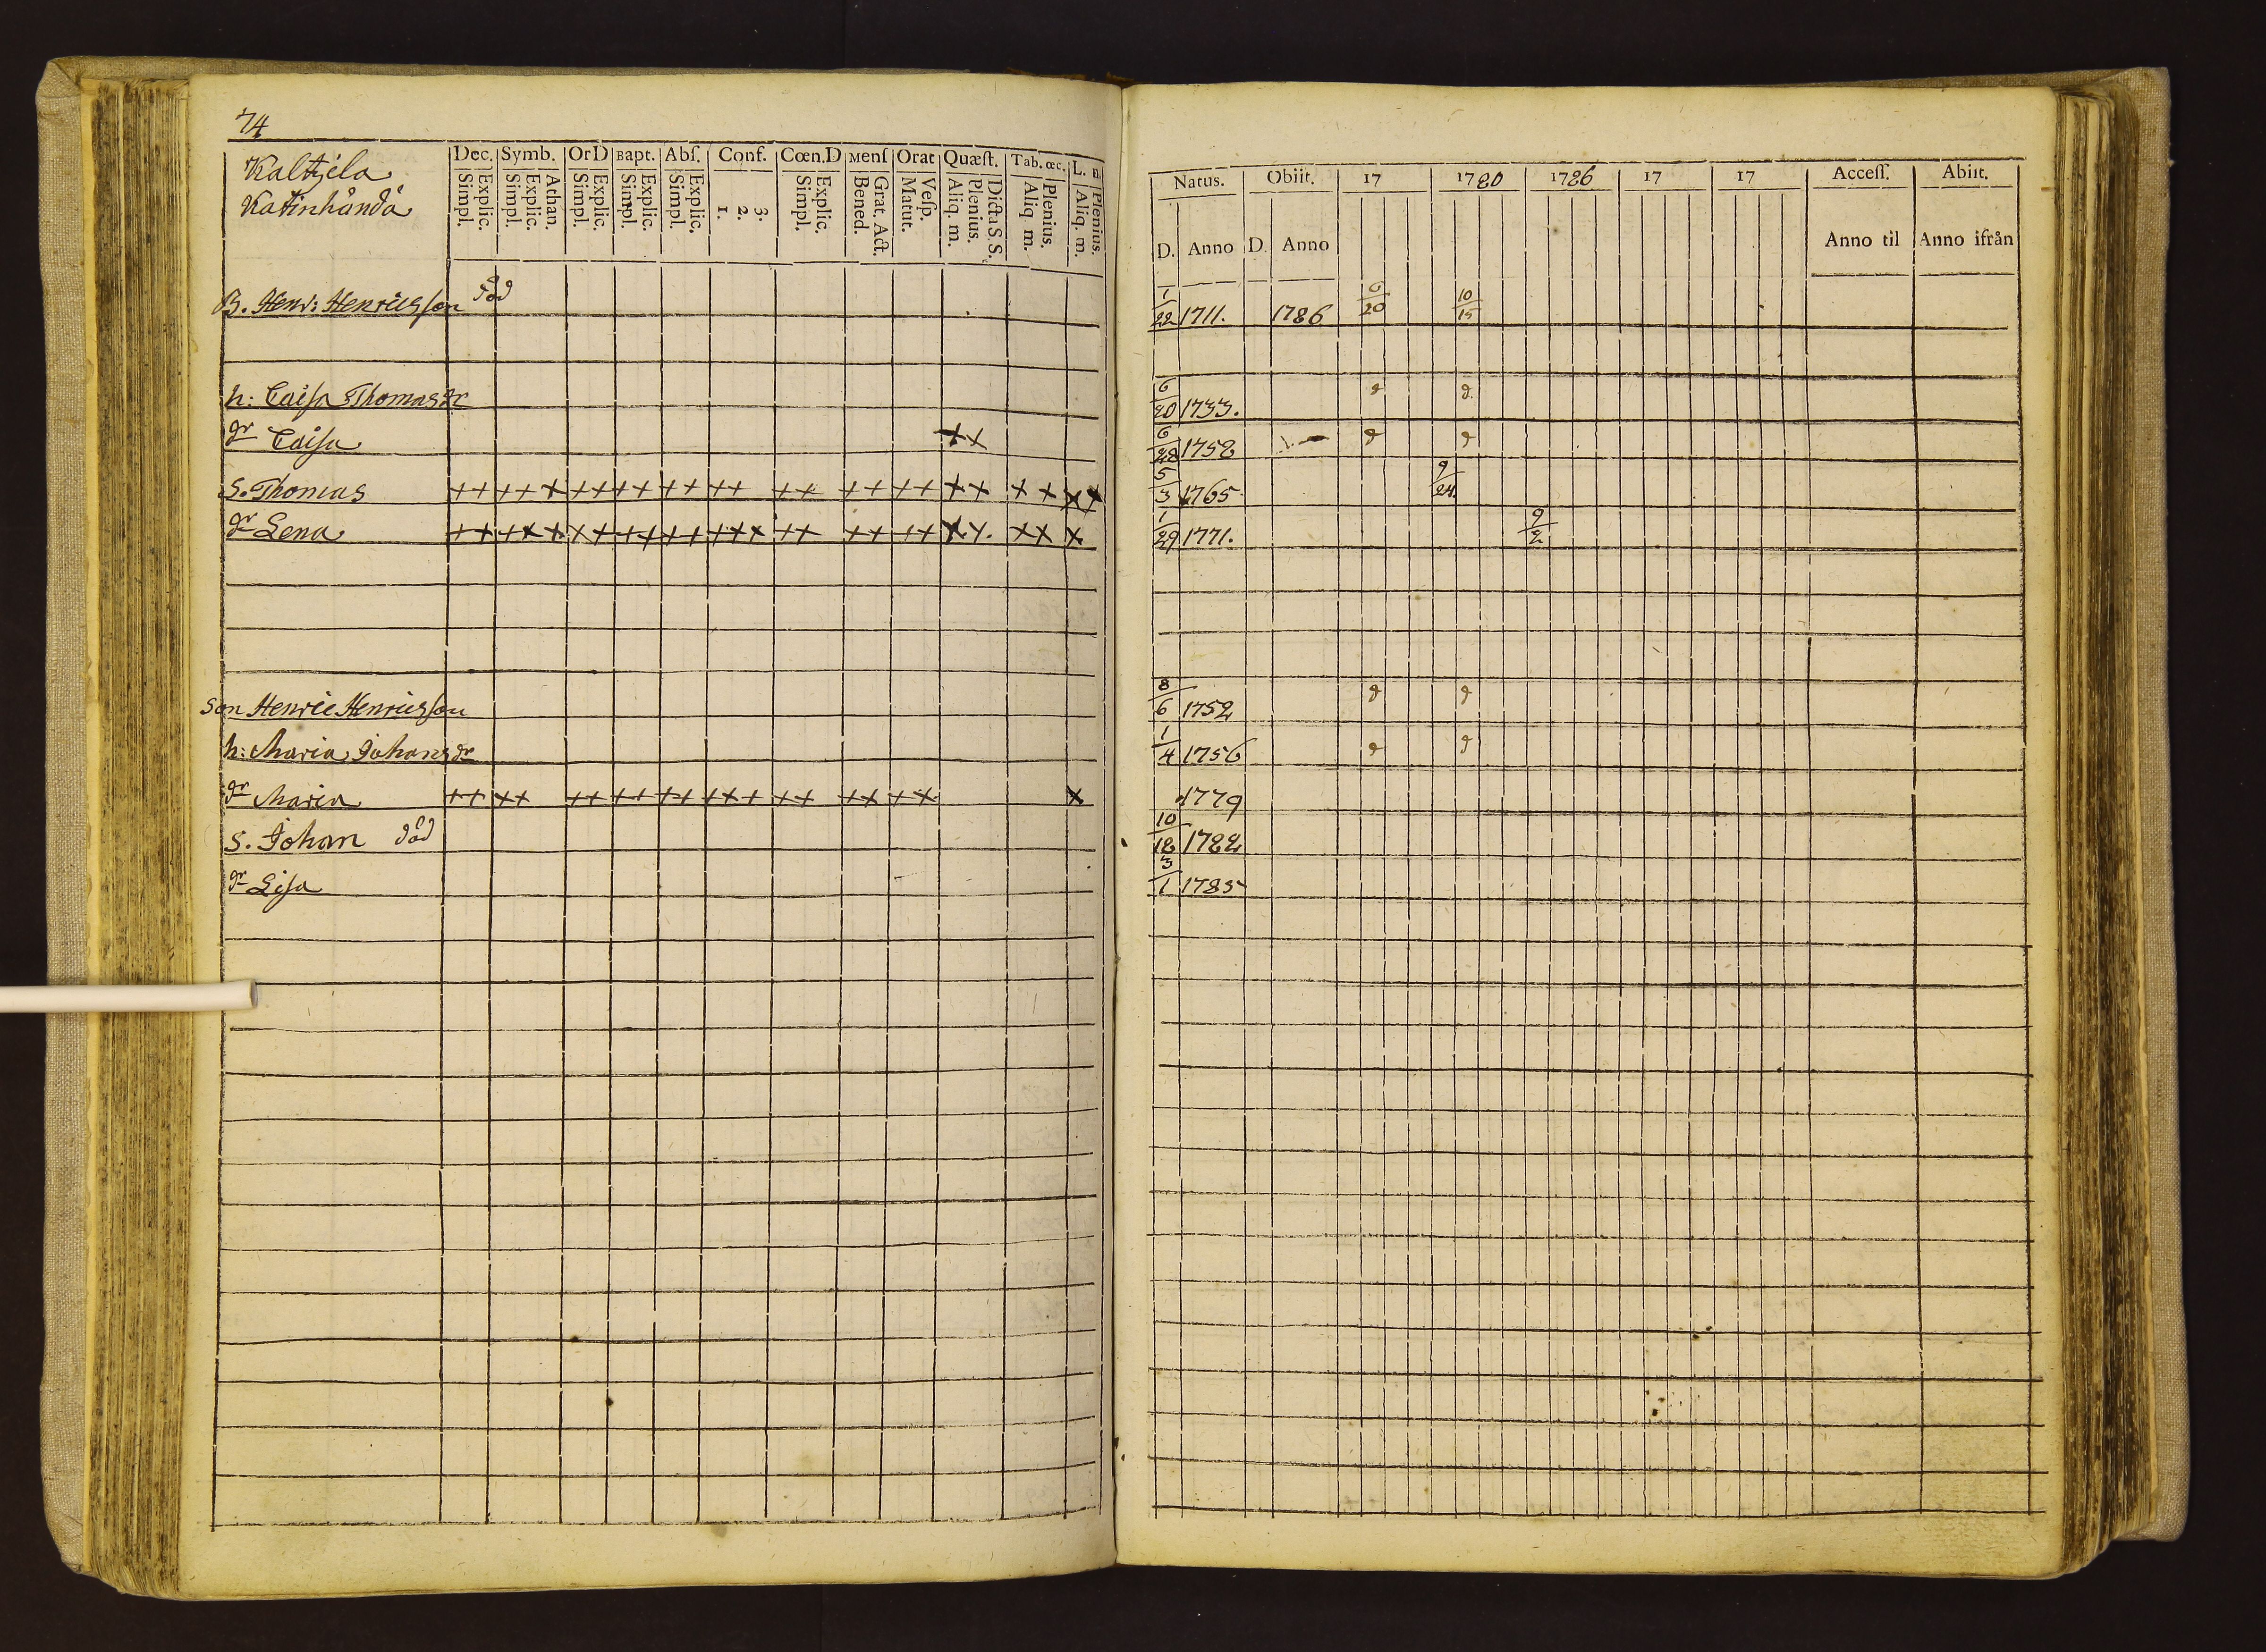 74
Kaltzila
Katinhåndå
Dec. Symb. OrD Bapt. Abſ. Conf. Cœn.D Menſ Orat Quæſt. Tab. œc. L.
Simpl. Explic. Simpl. Explic. Athan. Simpl. Explic. Simpl. Explic. Simpl. Explic. 1. 2. 3. Simpl. Explic. Bened. Grat. Act. Matut. Veſp. Aliq. m. Plenius. Dicta S.S. Aliq. m. Plenius. Aliq. m. Plenius.
Natus. Obiit. 17 1780 1786 17 17 Acceſſ. Abiit.
D. Anno D. Anno Anno til Anno ifrån
B. Henr: Henricsſon död 1/22 1711. 1786 6/20 10/15
h: Caiſa Thomasdr 6/20 1733. d d
dr Caiſa ++ 6/28 1752 d d
S. Thomas ++ +++ ++ ++ ++ ++ ++ ++ ++ ++ ++ ++ 5/3 1765 9/24
dr Lena ++ +++ ++ ++ ++ +++ ++ ++ ++ ++ ++ + 1/29 1771. 9/2
Son Henric Henricsſon 8/6 1752 d d
h: Maria Johansdr 1/4 1756 d d
dr Maria ++ ++ ++ ++ ++ +++ ++ ++ ++ + 1779
S. Johan död 10/12 1782
dr Liſa 3/1 1785